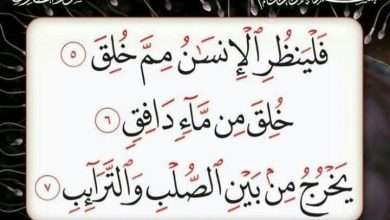 فَلْيَنظُرِ ٱلْإِنسَٰنُ مِمَّ خُلِقَ ٥
خُلِقَ مِن مَّآءٍ دَافِقٍ ٦
يَخْرُجُ مِنۢ بَيْنِ ٱلصُّلْبِ وَٱلتَّرَآئِبِ ٧